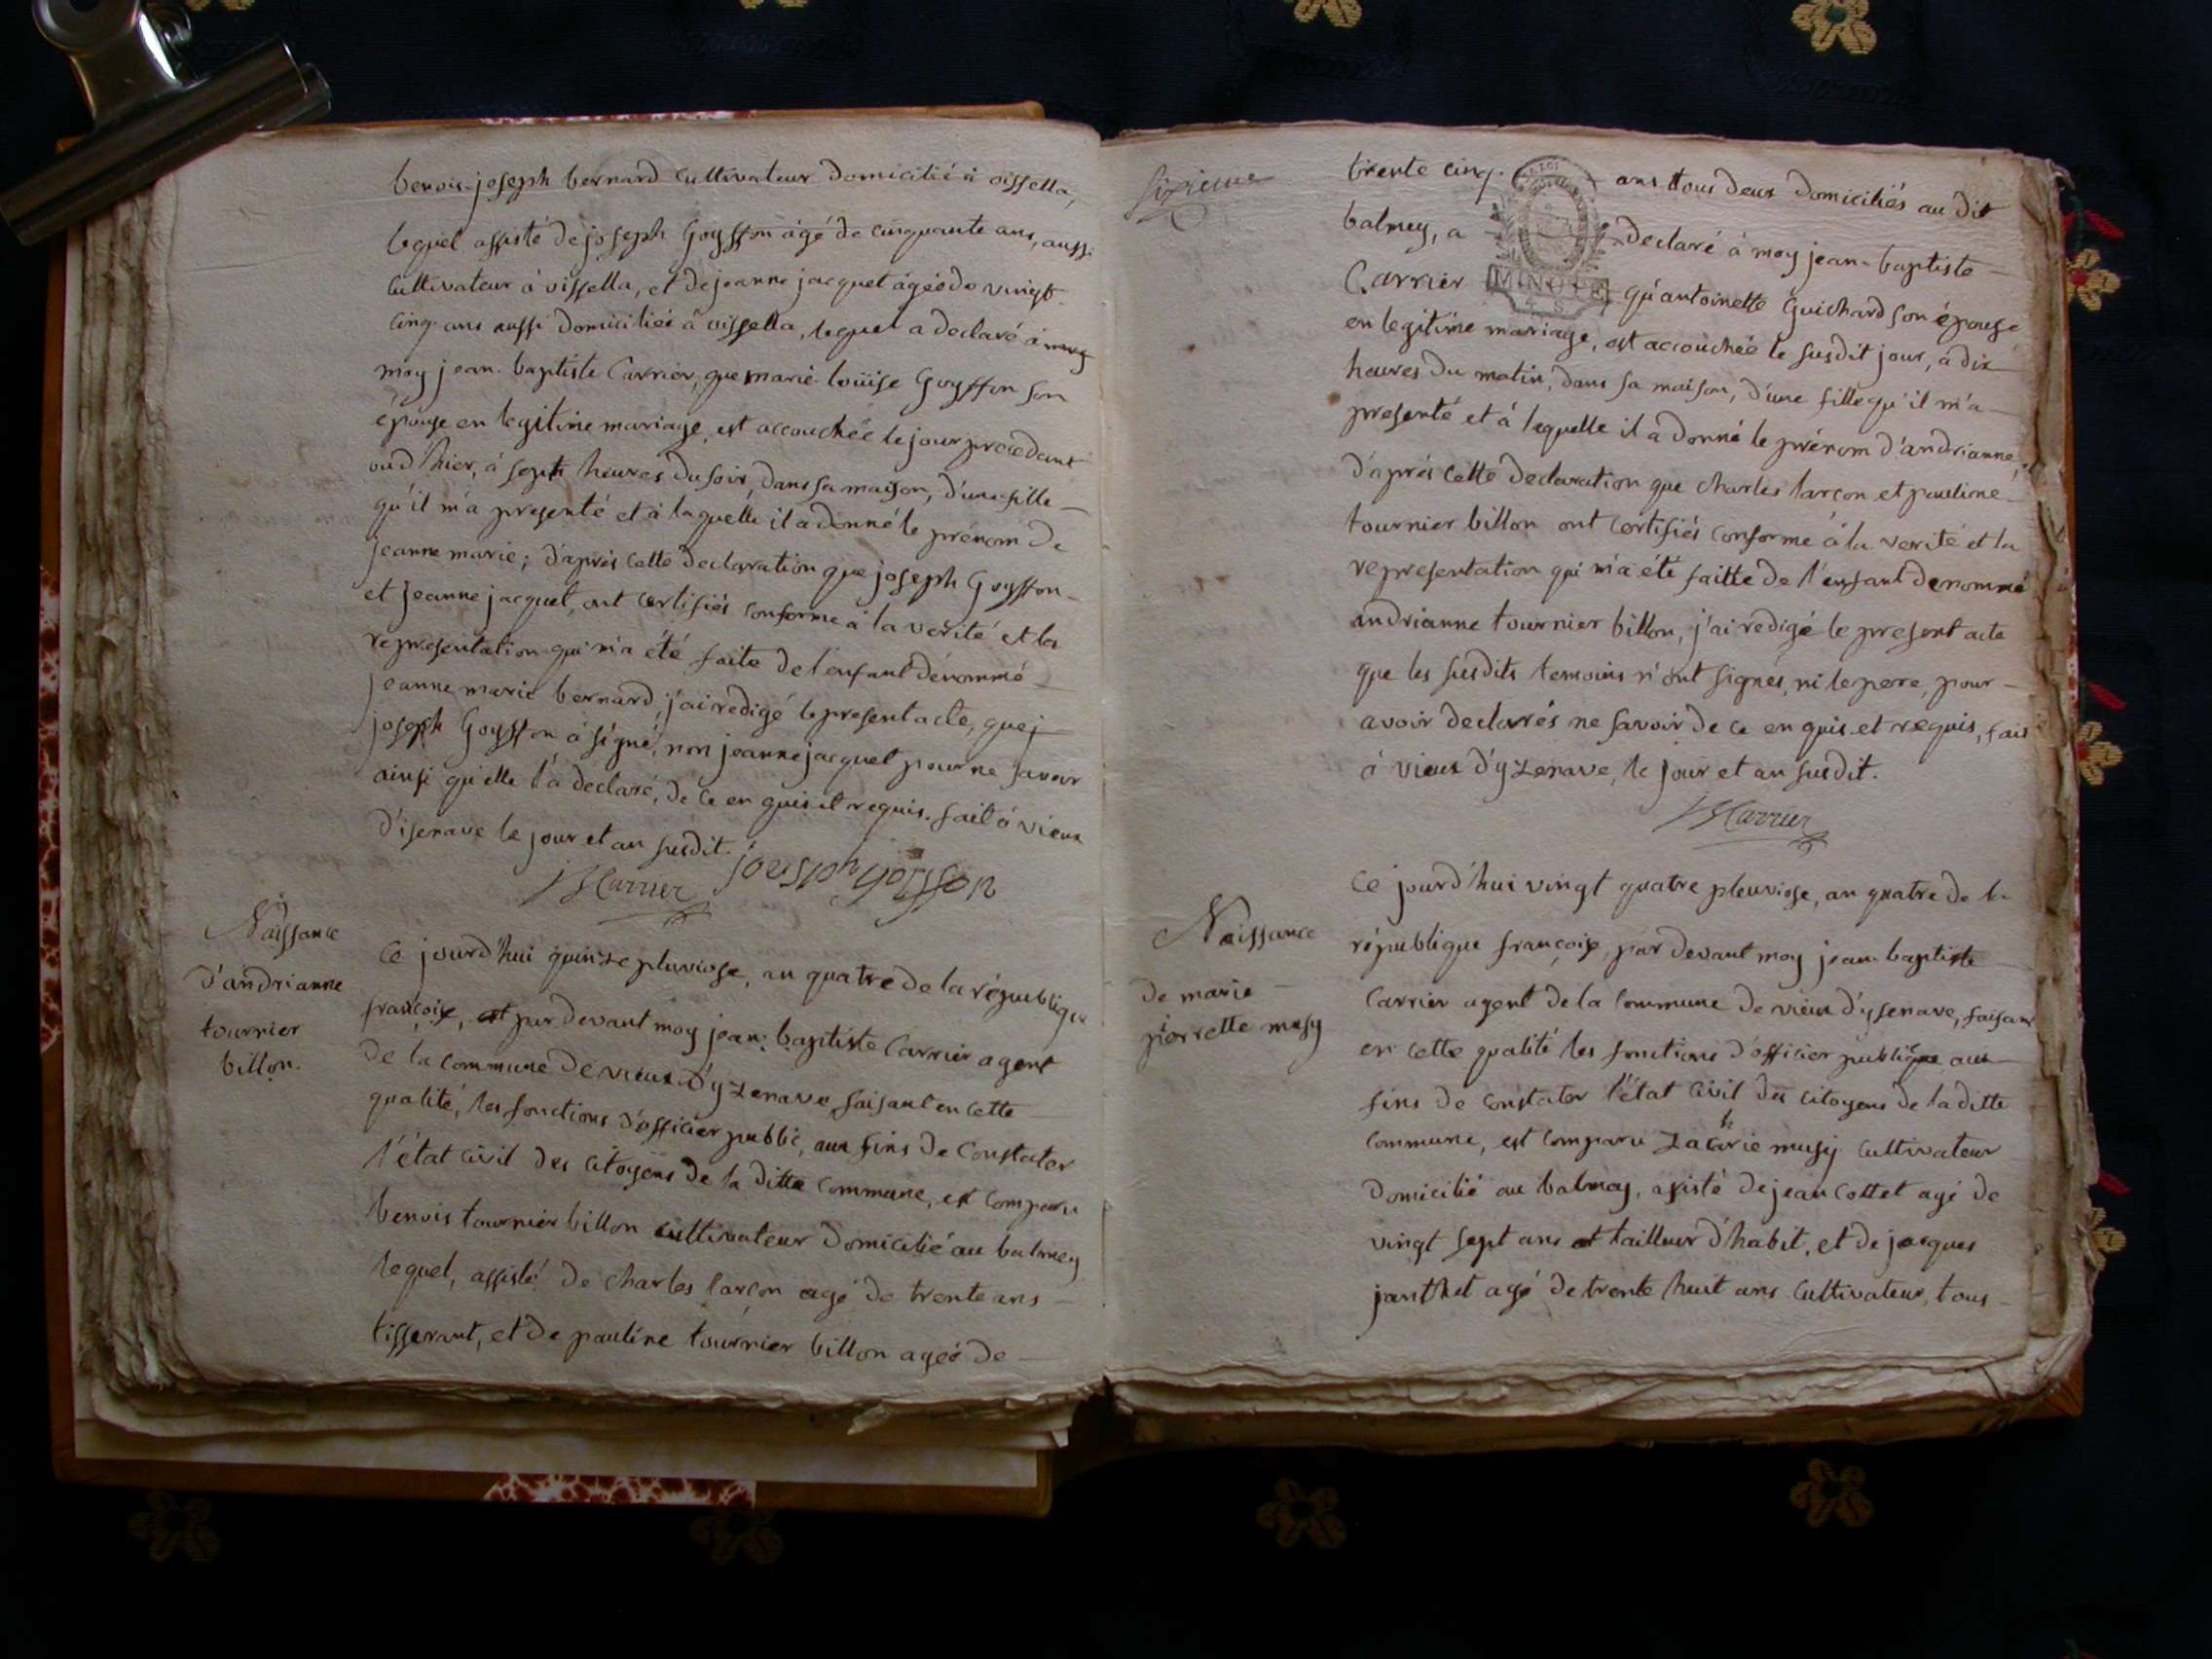 benois-joseph bernard cultivateur domicilié à oissella,
lequel assisté de joseph Goyffon âgé de cinquante ans, aussi
cultivateur à oissella, et de jeanne jacquet âgée de vingt
cinq ans aussi domiciliée à oissella, lequel a declaré à
moy jean-baptiste Carrier, que marie-loüise Goyffon son
épouse en legitime mariage, est accouchée le jour precedant
oud'hier, à sept heures du soir, dans sa maison, d'une fille
qu'il m'a presenté et à laquelle il a donné le prénom de
jeanne marie; d'après cette declaration que joseph Goyffon
et jeanne jacquet, ont certifiés conforme à la verité et la
representation qui m'a été faite de l'enfant dénommé
jeanne marie bernard, j'ai redigé le present acte, que j
joseph Goyffon à signé, non jeanne jacquet pour ne savoir
ainsi qu'elle l'a declaré, de ce en quis et requis. fait à vieux
d'isenave le jour et an susdit.
JBCarrier
Naissance
d'andrianne
tournier
billon.
Ce jourd'hui quinze pluviose, an quatre de la république
françoise, et par devant moy jean-baptiste Carrier agent
de la commune de vieux d'yzenave faisant en cette
qualité, les fonctions d'officier public, aux fins de Constater
l'état civil des citoyens de la ditte commune, est comparu
benois tournier billon cultivateur domicilié au balmey
lequel, assisté de charles larçon agé de trente ans
tisserant, et de pauline tournier billon agée de
sixieme
trente cinq ans tous deux domiciliés au dit
balmey, a declaré à moy jean-baptiste
Carrier qu'antoinette Guichard son épouse
MINUTE
en legitime mariage, est accouchée le susdit jour, à dix
heures du matin, dans sa maison, d'une fille qu'il m'a
presenté et à laquelle il a donné le prénom d'andrianne,
d'après cette declaration que charles larçon et pauline
tournier billon ont certifiés conforme à la verité et la
representation qui m'a été faitte de l'enfant denommé
andrianne tournier billon, j'ai redigé le present acte
que les susdits temoins n'ont signés, ni le pere, pour
avoir declarés ne savoir de ce en quis et requis, fait
à vieux d'yzenave, le jour et an susdit.
JBCarrier
Naissance
de marie
pierrette musy
Ce jourd'hui vingt quatre pleuviose, an quatre de la
république françoise, par devant moy jean-baptiste
Carrier agent de la commune de vieux d'ysenave, faisant
en cette qualité les fonctions d'officier publique aux
fins de constater l'état civil des citoyens de la ditte
commune, est comparu zacharie musy cultivateur
domicilié au balmey, assisté de jean Cottet agé de
vingt sept ans et tailleur d'habit, et de jacques
janthet agé de trente huit ans cultivateur, tous